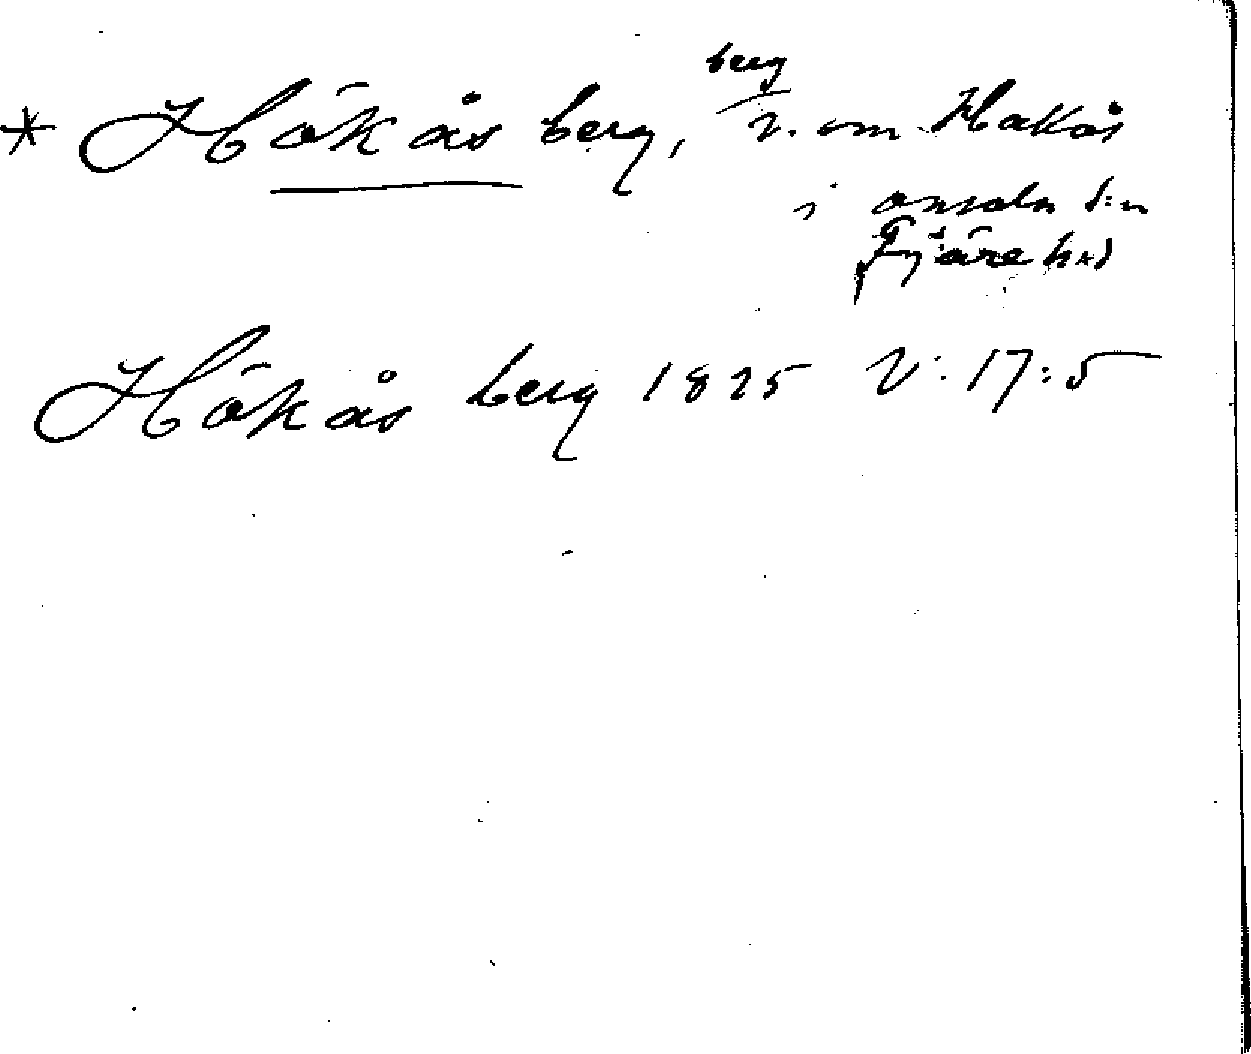 * Hökås berg, berg v. om Hakås
i onsala s:n
Fjäre hd
Hökås berg 1825 V: 17:5